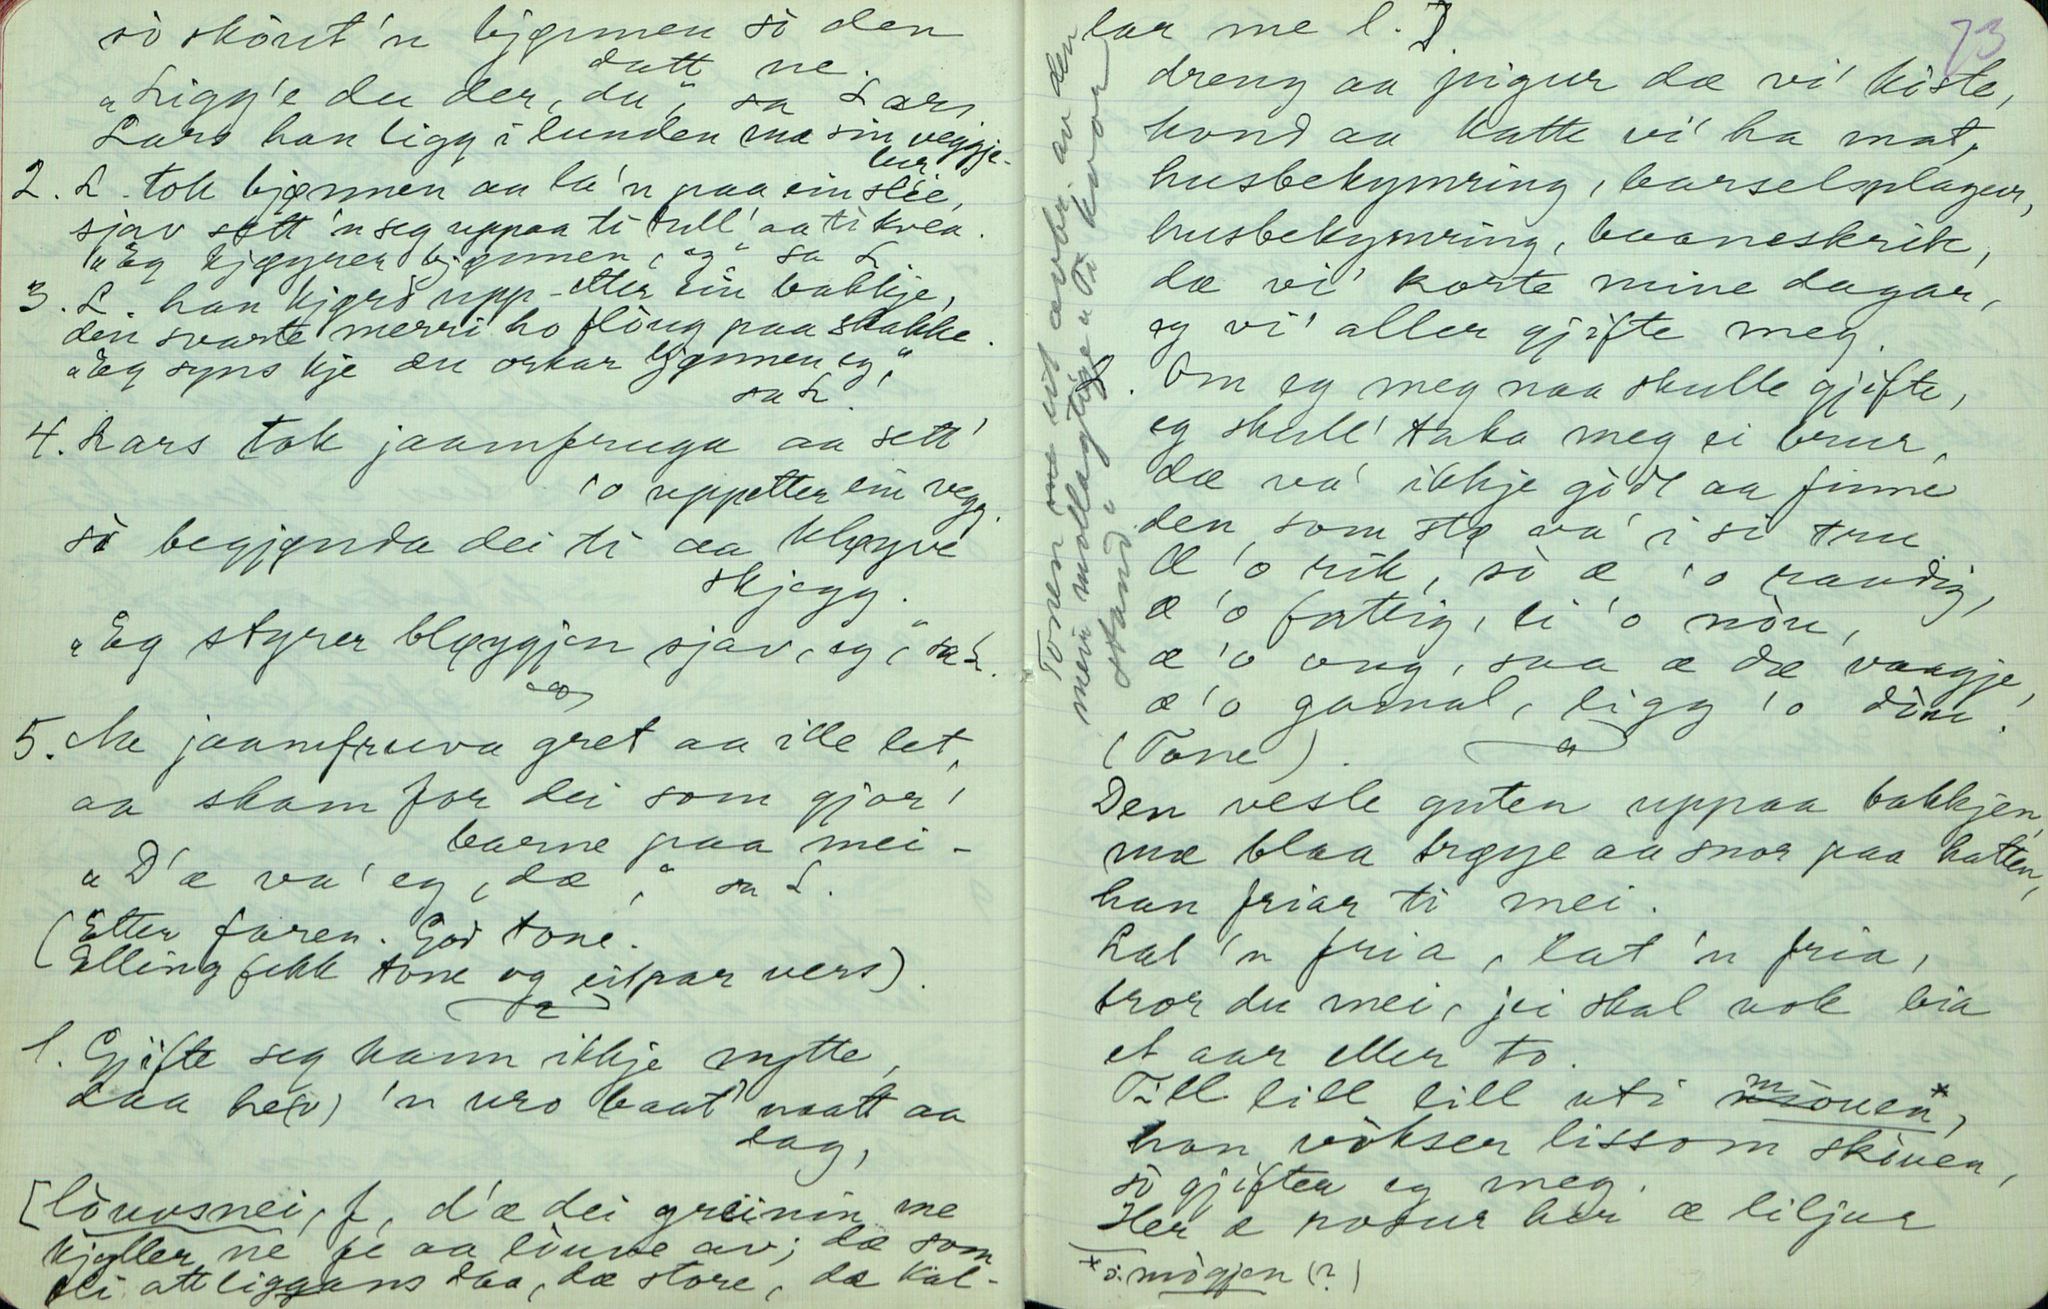 sò skòut'n bjønnen sò den
datt ne.
"Ligg'e du der, du", sa Lars
Lars han ligg i lunden mæ sin veggje-
bur
2. L. tok bjønnen aa la'n paa ein slee,
sjav sett 'n seg uppaa ti tull' aa ti kvea.
"Eg kjøyrer bjønnen, eg" sa L.
3. L. han kjørd upp-etter ein bakkje,
den svarte merri ho flòug paa skakke.
"Eg syns kje du orkar bjønnen eg,"
sa L.
4. Lars tok jaamfruga aa sett'
'o uppetter ein vegg.
sò begjønda dei ti aa kløyve
skjegg.
"Eg styrer bløygjen sjav, eg," sa L.
5. Aa jaamfruva gret aa ille let,
aa skam for dei som gjor'
barne paa mei -
"D'æ va' eg, dæ", sa L.
(Etter faren. God tone.
Elling fekk tone og eitpar vers).
1. Gjifte seg kann ikkje nytte,
daa he(v) 'n uro baat' naatt aa
dag,
[lòuvsnei, f, d'æ dei greinin me
kjøller ne fe aa lòuve av; dæ som
bli att liggans daa, dæ store, dæ kal-
lar me l. ].
73
dreng aa pigur dæ vi' kòste,
hond aa katte vi' ha mat,
husbekymring, barselsplagur,
husbekymring, baaneskrik,
dæ vi' korte mine dagar,
eg vi' aller gjifte meg.
2. Om eg meg naa skulle gjifte,
eg skull' taka meg ei brur,
dæ va' ikkje gòdt aa finne
den, som stø va' i si tru.
Æ 'o rik, sò æ 'o raudig,
æ 'o fattig, li 'o nòu,
æ 'o ong, saa æ dæ vaagje,
æ 'o gamal, ligg 'o dòu!
(Tone).
Tonen me eit avbr. av den
meir mollagtige "Ti kvar
stand"
Den vesle guten uppaa bakkjen,
mæ blaa trøye aa snor paa hatten,
han friar ti mei.
Lat 'n fria, lat 'n fria,
tror du mei, jei skal nok bia
et aar eller to.
Till lill lill uti mòuen*,
han vòkser lissom skòuen,
sò gjifter eg meg.
Her æ rosur her æ liljur
* ɔ: mògjen (?)